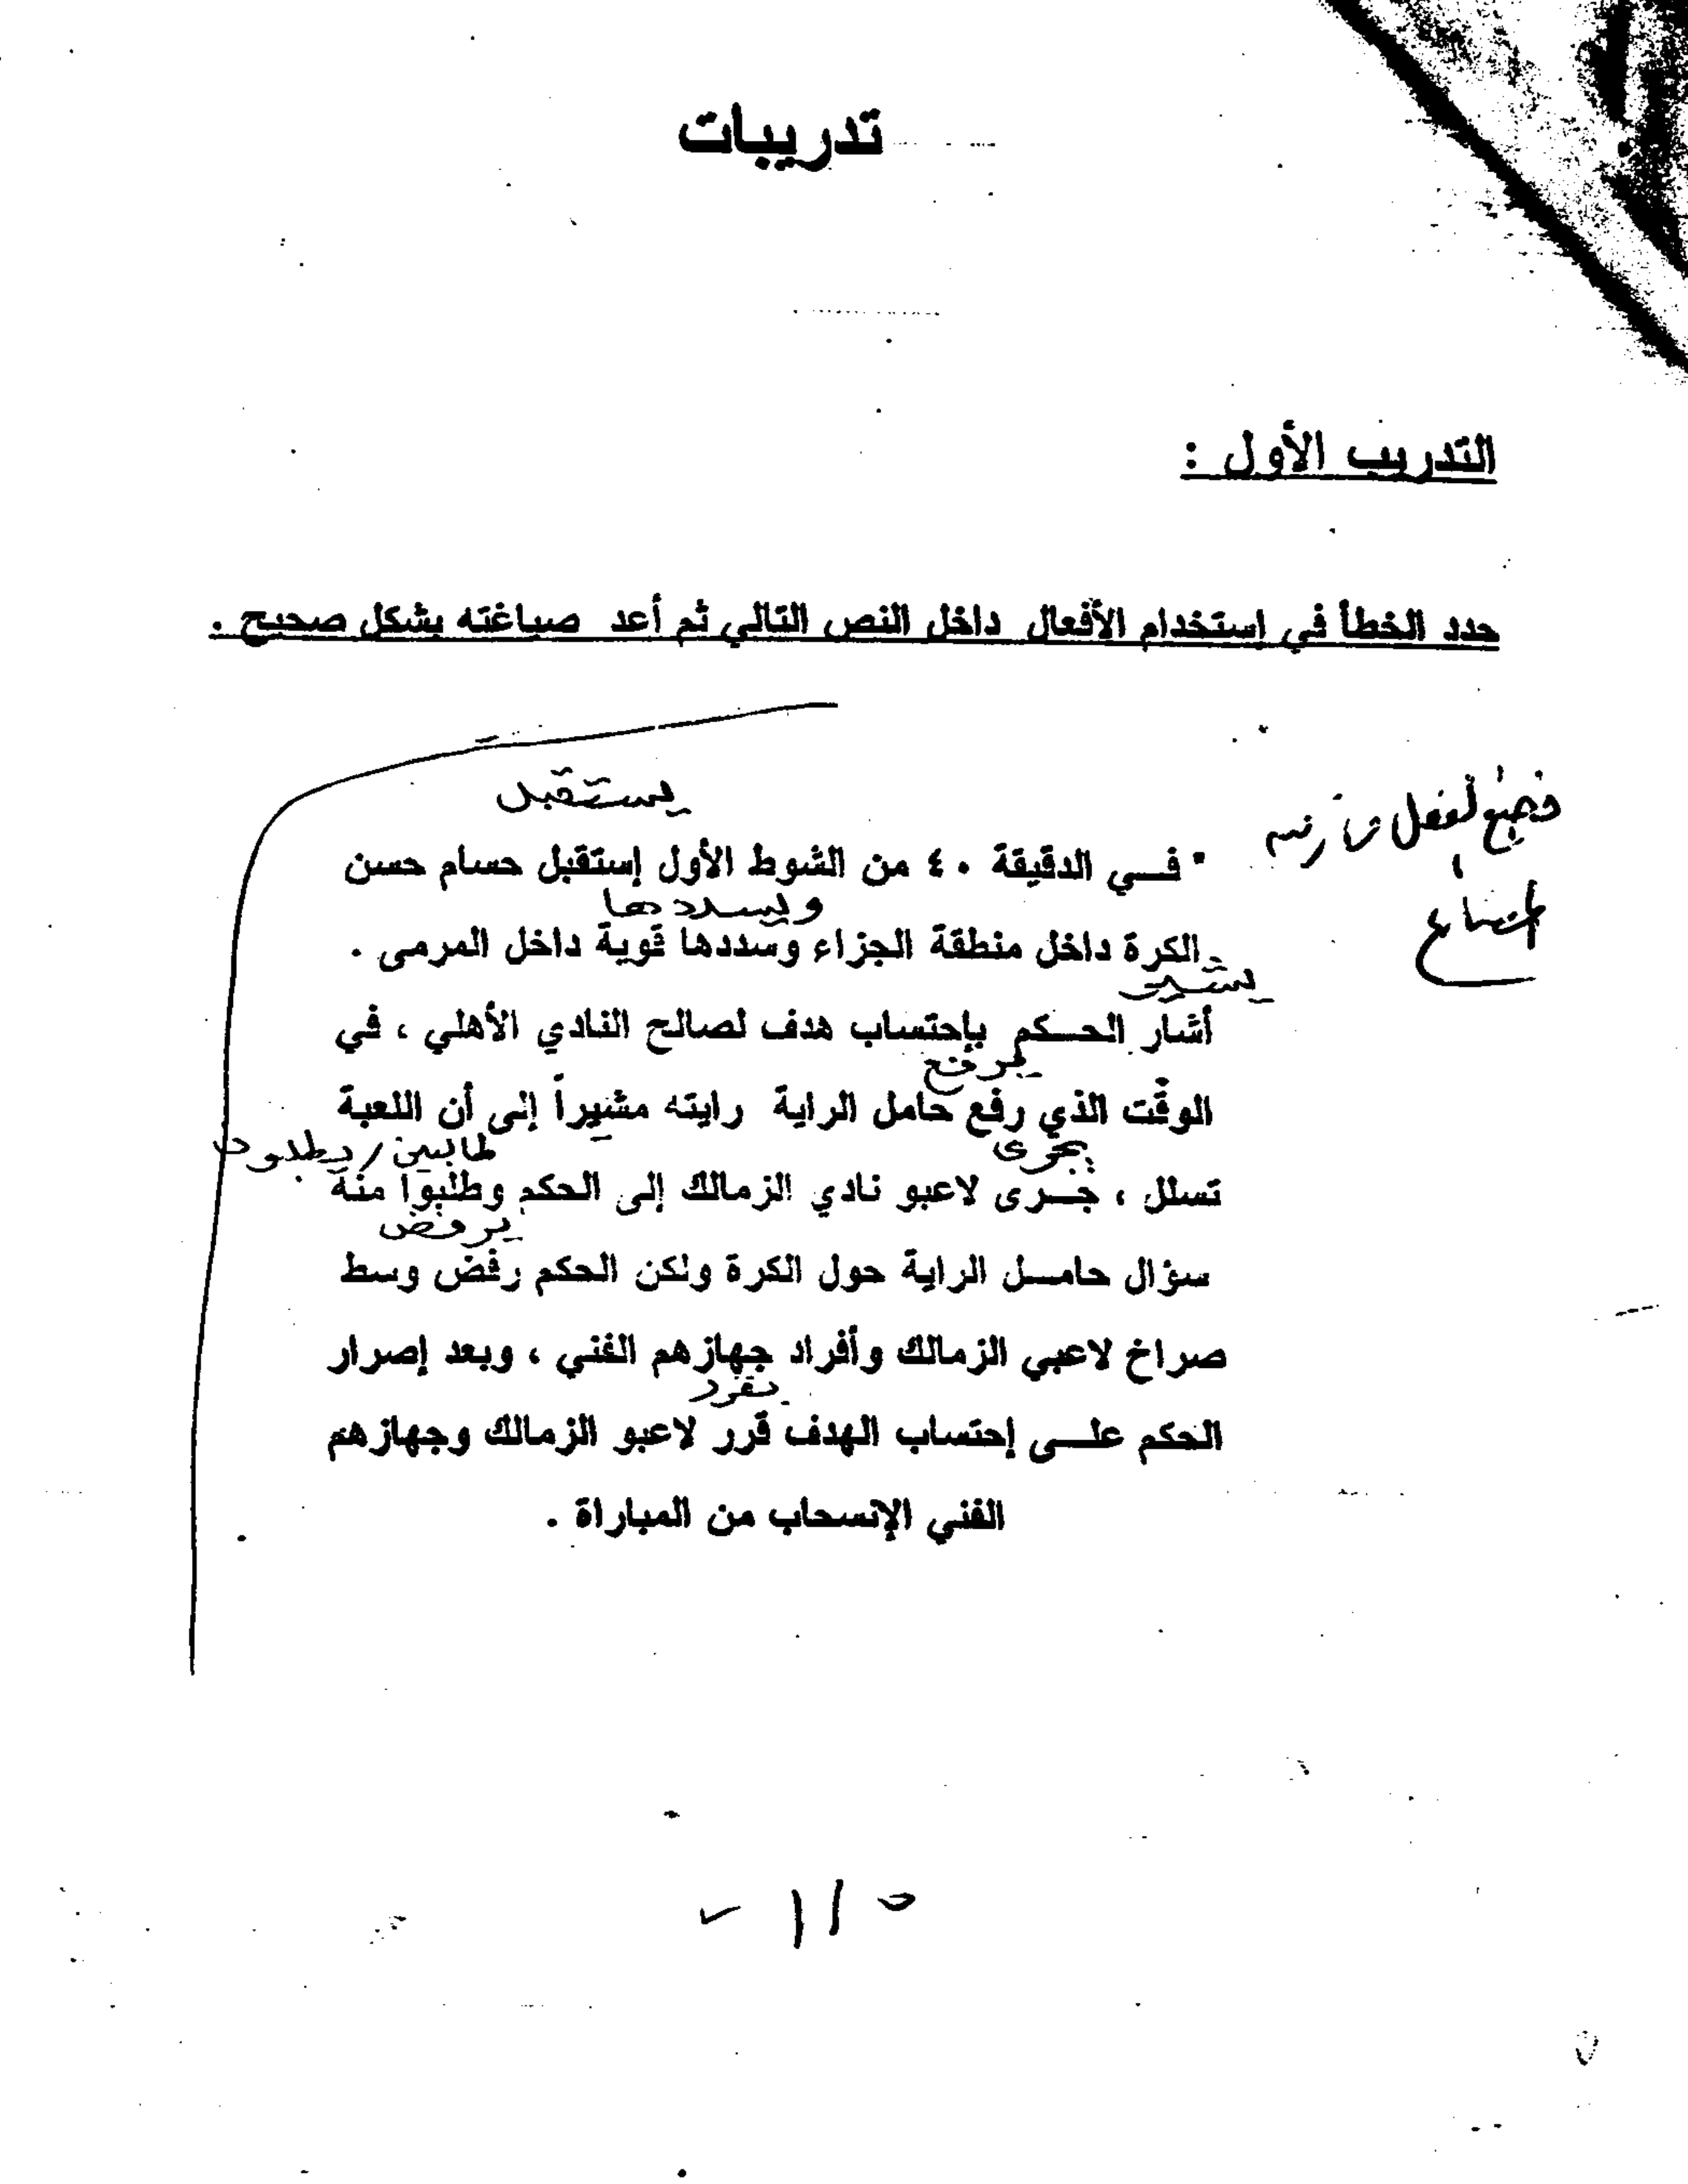 تدريبات
التدريب الأول :
حدد الخطأ في إستخدام الأفعال داخل النص التالي ثم أعد صياغته بشكل صحيح .
يستقبل
" في الدقيقة ٤٠ من الشوط الأول إستقبل حسام حسن
ويسددها
الكرة داخل منطقة الجزاء وسددها قوية داخل المرمى .
يشير
أشار الحكم بإحتساب هدف لصالح النادي الأهلي ، في
يرفع
الوقت الذي رفع حامل الراية رايته مشيراً إلى أن اللعبة
يجرى
طالبين / يطلبون
تسلل ، جرى لاعبو نادي الزمالك إلى الحكم وطلبوا منه
يرفض
سؤال حامل الراية حول الكرة ولكن الحكم رفض وسط
صراخ لاعبي الزمالك وأفراد جهازهم الفني ، وبعد إصرار
يقرر
الحكم على إحتساب الهدف قرر لاعبو الزمالك وجهازهم
الفني الإنسحاب من المباراة .